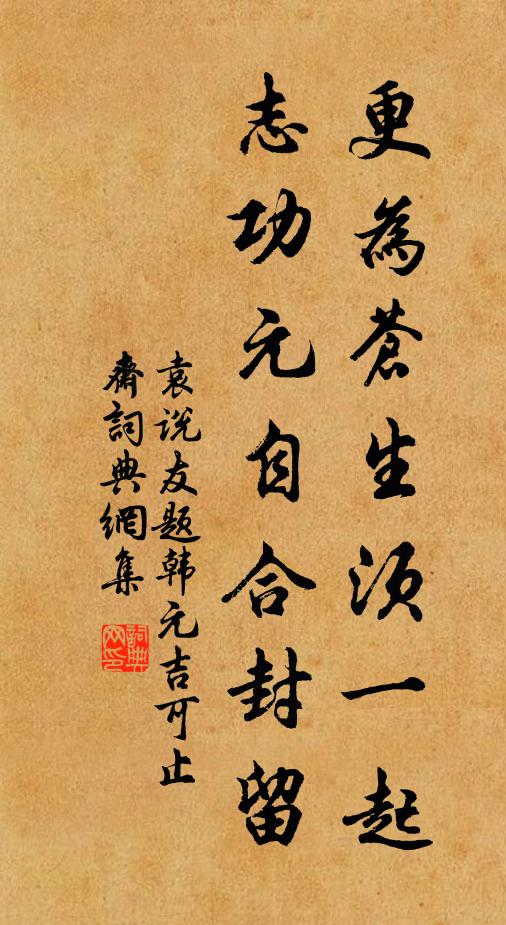 更為蒼生須一起
志功元自合封留
袁说友题韩元吉可止
齋詞典網集
詞典
网印